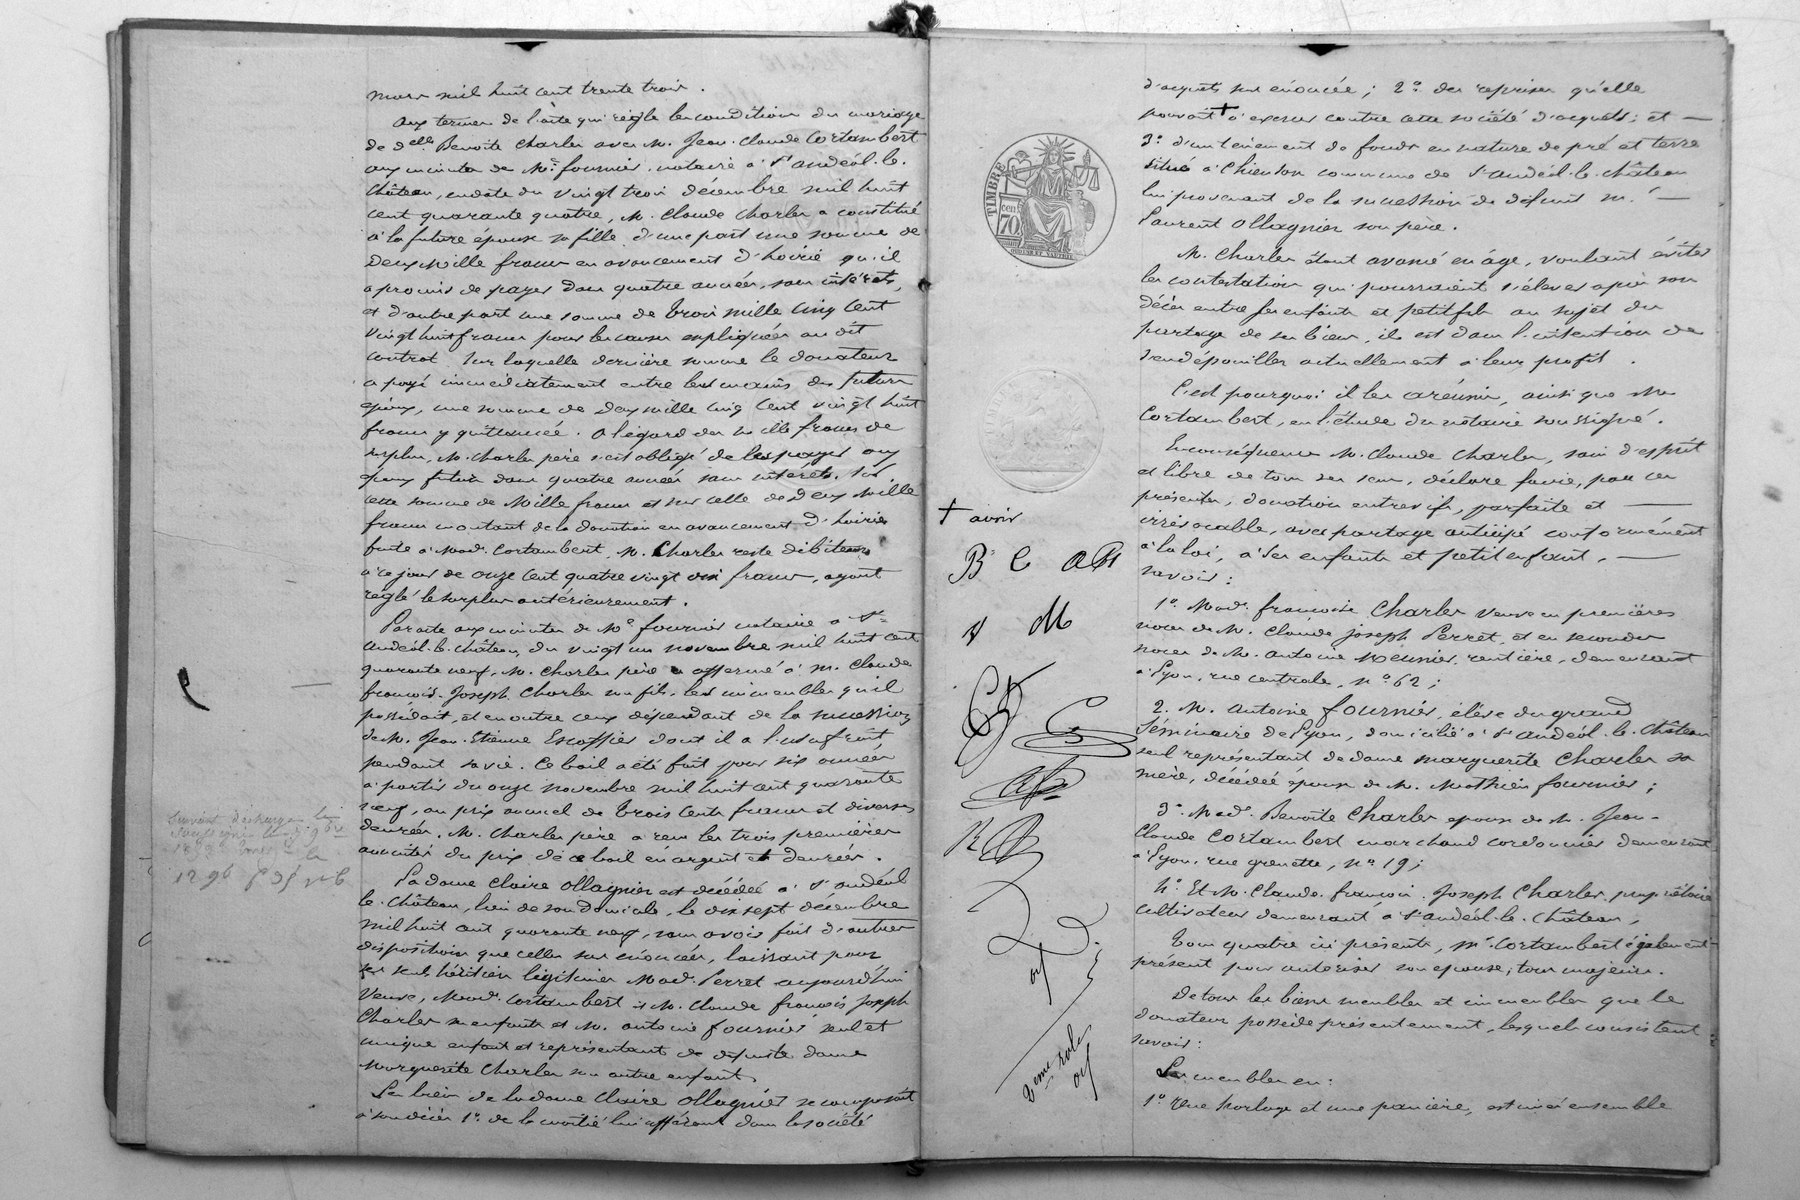 mars mil huit cent trente trois.
Aux termes de l'acte qui règle les conditions du mariage
de delle Benoite Charles avec M. Jean-Claude Cortambert
aux minutes de Me fournier, notaire à St andéol-le-
Château, en date du vingt trois décembre mil huit
cent quarante quatre, M. Claude Charles a constitué
à la future épouse sa fille, d'une part une somme de
Deux Mille francs en avancement d'hoirie qu'il
a promis de payer dans quatre années, sans intérêts,
et d'autre part une somme de trois mille cinq cent
vingt huit francs pour les causes expliquées au dit
contrat. Sur laquelle dernière somme le donateur
a payé immédiatement entre les mains des futurs
époux, une somme de deux mille cinq cent vingt huit
francs y quittancée. A l'égard des mille francs de
surplus, M. Charles père s'est obligé de les payer aux
époux futurs dans quatre années sans intérêts. Sur
cette somme de Mille francs et sur celle de deux mille
francs montant de la donation en avancement d'hoirie
faite à Made Cortambert, M. Charles reste débiteur
à ce jour de onze cent quatre vingt dix francs, ayant
réglé le surplus antérieurement.
Par acte aux minutes de Me fournier notaire à St
Andéol-le-Château, du vingt un novembre mil huit cent
quarante neuf, M. Charles père a affermé à M. Claude
françois-Joseph Charles son fils, les immeubles qu'il
possédait, et en outre ceux dépendant de la succession
de M. Jean-Etienne Escoffier dont il a l'usufruit
pendant sa vie. Ce bail a été fait pour six années
à partir du onze novembre mil huit cent quarante
neuf, au prix annuel de trois cents francs et diverses
denrées. M. Charles père a reçu les trois premières
annuités du prix de ce bail en argent et denrées.
La dame Claire Ollagnier est décédée à St andéol
le-Château, lieu de son domicile, le dix sept décembre
mil huit cent quarante neuf, sans avoir fait d'autres
dispositions que celles sus énoncées, laissant pour
ses seuls héritiers légitimes Made Perret aujourd'hui
Veuve, Made Cortambert et M. Claude françois Joseph
Charles ses enfants et M. antoine fournier, seul et
unique enfant et représentant de défunte dame
Marguerite Charles son autre enfant.
Les biens de la dame Claire Ollagnier se composaient
à son décès 1° de la moitié lui afférant dans la société
d'acquêts sus énoncée; 2° des reprises qu'elle
pouvait + à exercer contre cette société d'acquêts; et —
3° d'un tènement de fonds en nature de pré et terre
situé à Chienson commune de St Andéol-le-Château
lui provenant de la succession de défunt M. —
Laurent Ollagnier son père.
M. Charles étant avancé en âge, voulant éviter
les contestations qui pourraient s'élever après son
décès entre ses enfants et petit fils au sujet du
partage de ses biens, il est dans l'intention de
s'en dépouiller actuellement à leur profit.
C'est pourquoi il les a réunis, ainsi que M.
Cortambert, en l'étude du notaire soussigné.
En conséquence M. Claude Charles, sain d'esprit
et libre de tous ses sens, déclare faire, par ces
présentes, donation entrevifs, parfaite et —
irrévocable, avec partage anticipé conformément
à la loi, à ses enfants et petit enfant, —
savoir:
1°. Made françoise Charles veuve en premières
noces de M. Claude joseph Perret, et en secondes
noces de M. Antoine Meunier, rentière, demeurant
à Lyon, rue centrale, n° 62;
2. M. Antoine fournier, élève du grand
Séminaire de Lyon, domicilié à St Andéol-le-Château
seul représentant de dame Marguerite Charles sa
mère, décédée épouse de M. Mathieu fournier;
3° Made Benoite Charles épouse de M. Jean-
Claude Cortambert marchand cordonnier demeurant
à Lyon, rue grenette, n° 19;
4°. Et M. Claude-françois-Joseph Charles propriétaire
cultivateur demeurant à St Andéol-le-Château,
Tous quatre ici présents, M. Cortambert également
présent pour autoriser son épouse; tous majeurs.
De tous les biens meubles et immeubles que le
donateur possède présentement, lesquels consistent
savoir:
Les meubles en:
1° Une horloge et une panière, estimés ensemble
TIMBRE
70 cent
+ avoir
B C
M
2eme rôle